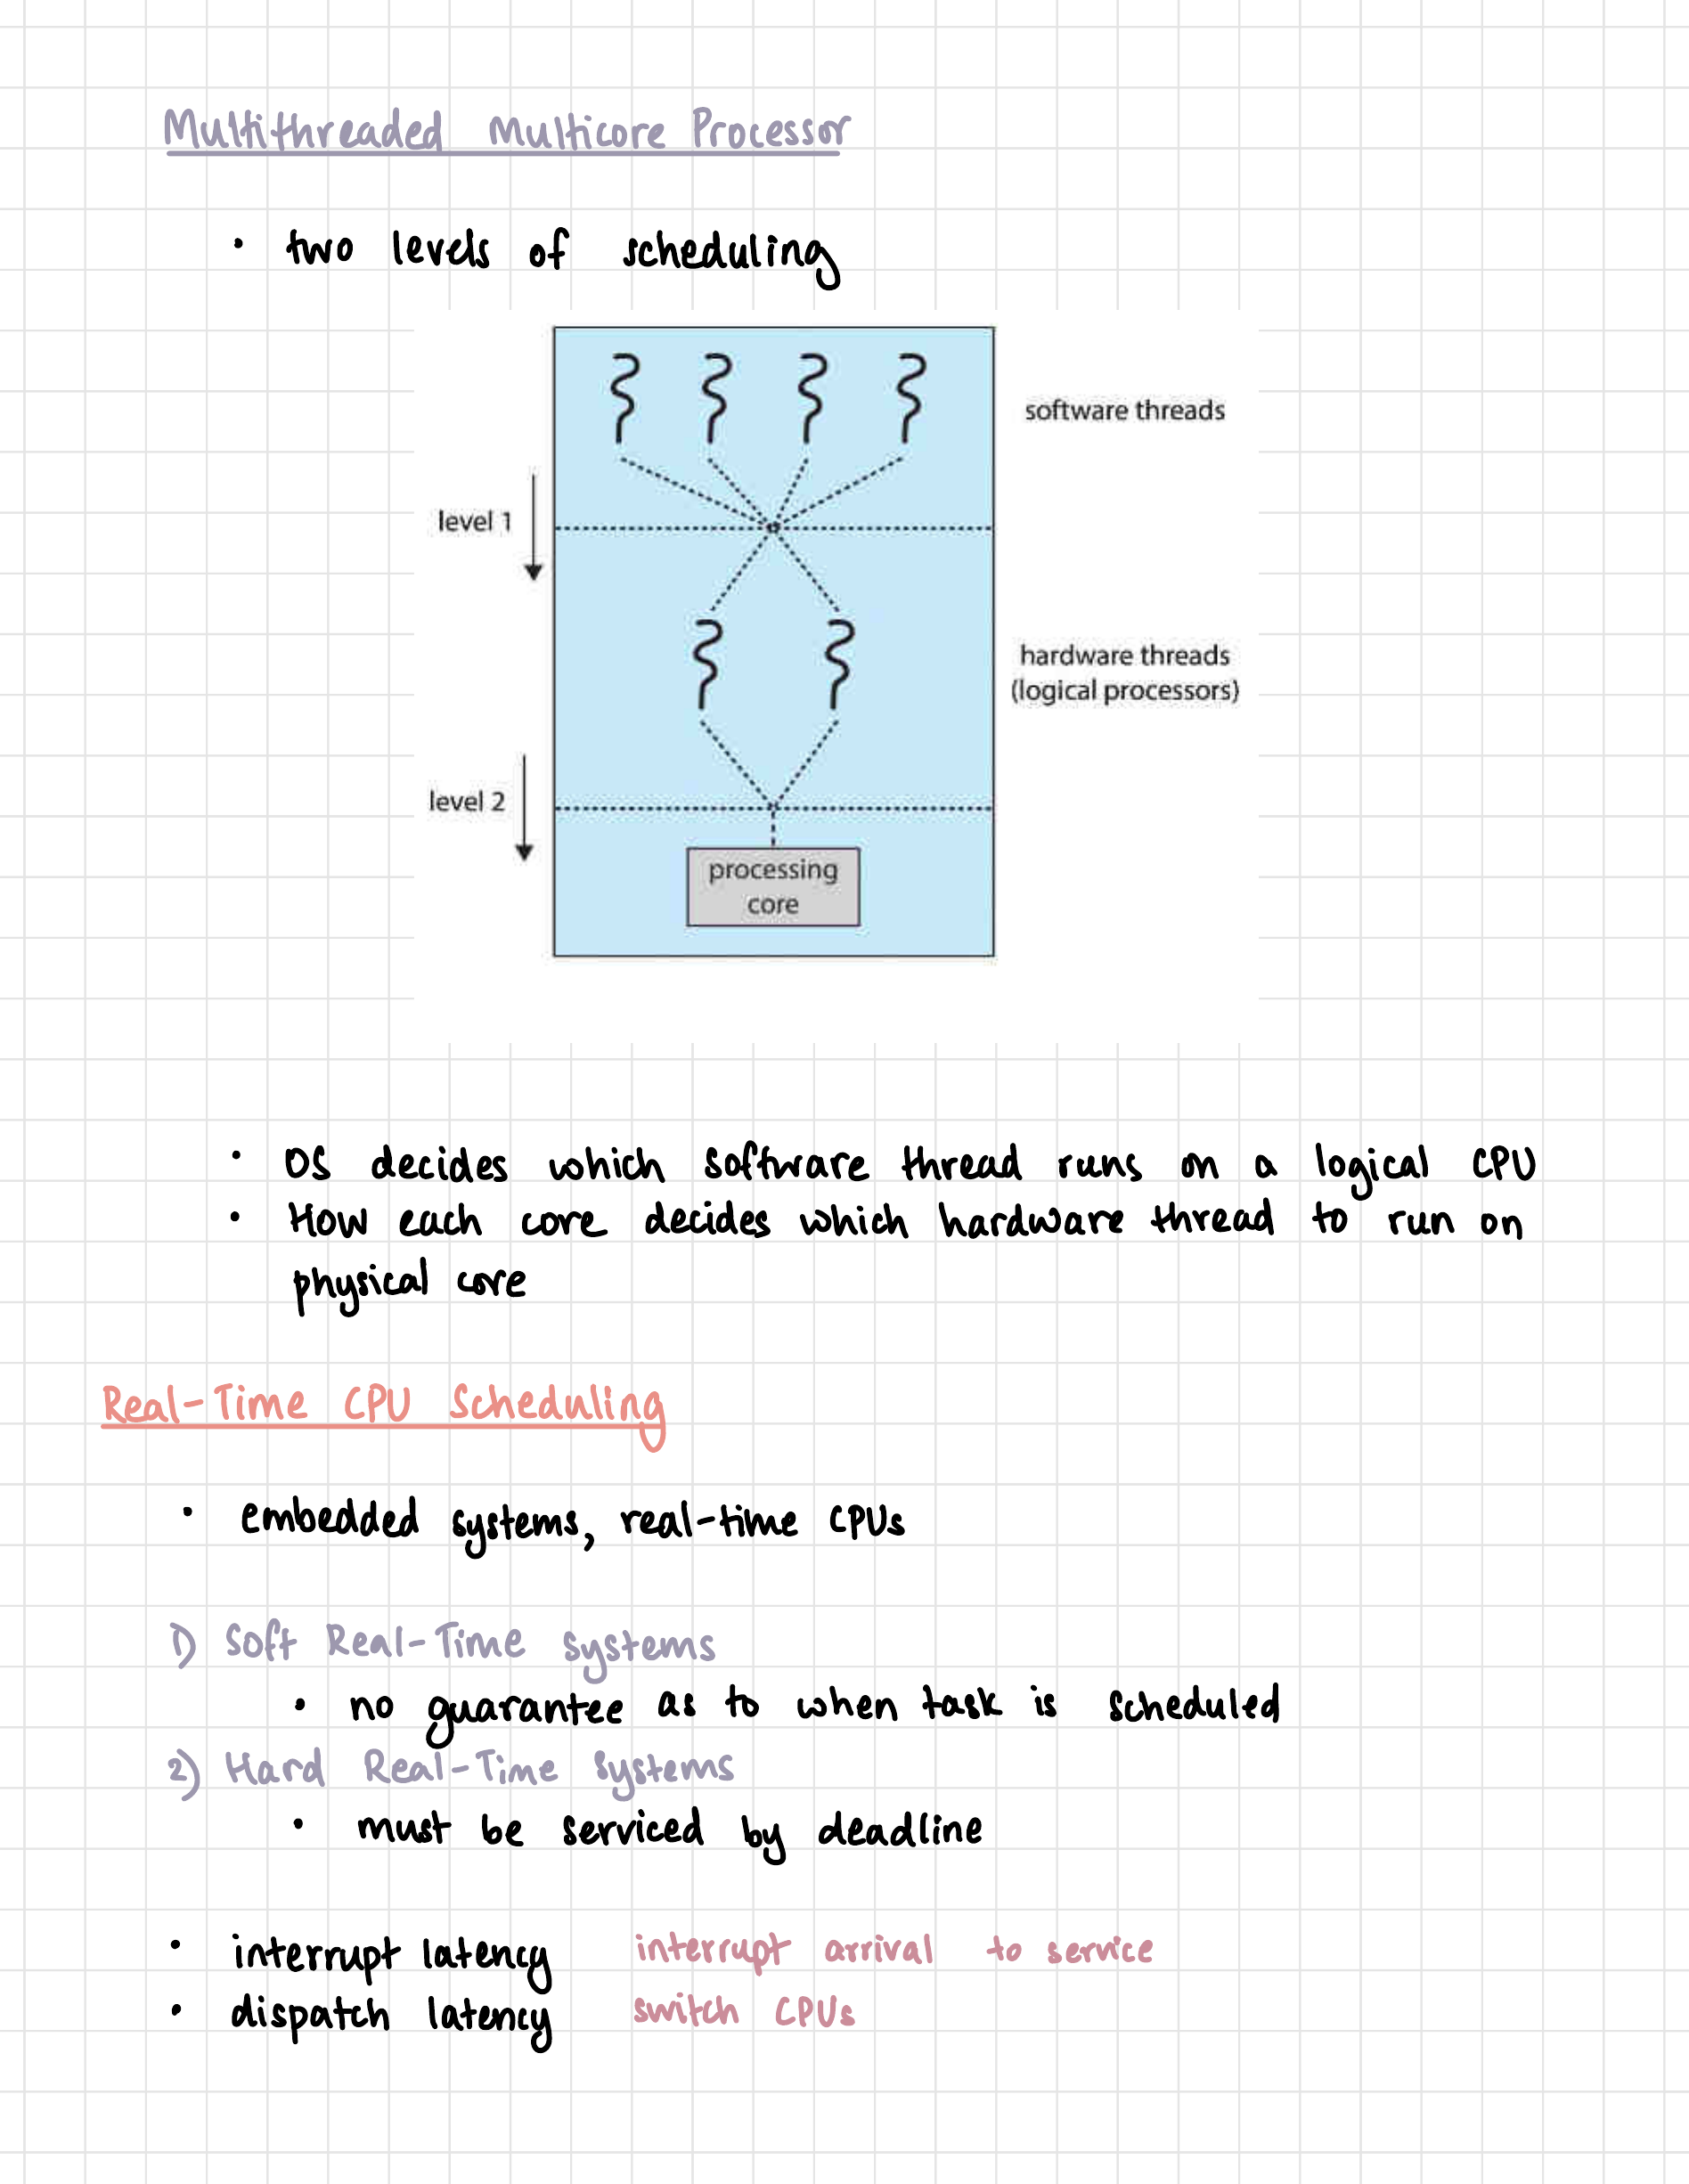 Multithreaded Multicore Processor
• two levels of scheduling
software threads
level 1
hardware threads
(logical processors)
level 2
processing
core
• OS decides which software thread runs on a logical CPU
• How each core decides which hardware thread to run on
physical core
Real-Time CPU Scheduling
• embedded systems, real-time CPUs
1) Soft Real-Time systems
• no guarantee as to when task is scheduled
2) Hard Real-Time Systems
• must be serviced by deadline
• interrupt latency interrupt arrival to service
• dispatch latency switch CPUs